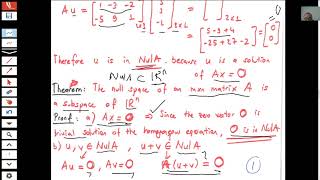 Au = [1 -3 -2; -5 9 1] [5; 3; -2] = [ ] = [5-9+4; -25+27-2] = [0; 0]
2x3 3x1 2x1 2x1
Therefore u is in NulA. because u is a solution
NulA ⊂ ℝⁿ of Ax = 0
Theorem: The null space of an mxn matrix A is
a subspace of ℝⁿ
Proof: a) Ax = 0 → Since the zero vector 0 is
trivial solution of the homogenous equation, 0 is in NulA
b) u, v ∈ NulA, u+v ∈ NulA
?
Au = 0, Av = 0 A(u+v) = 0
1